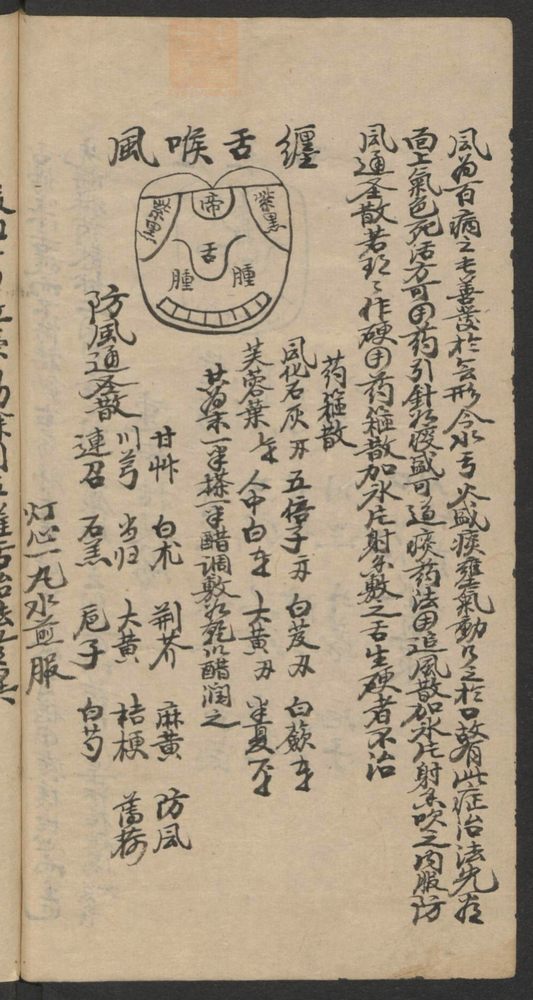 風為百病之長善發於無形令水亏火盛痰壅氣動乃之於口故有此症治法先看
面上氣色死活方可用药引針於後盛可追痰药法用追風散加冰片射香吹之内服防
風通圣散若作硬用药箍散加冰片射香敷之舌生硬者不治
纏舌喉風
紫黑
帝
紫黑
舌
腫
腫
药箍散
風化石灰 五倍子 白芨 白蘞
芙蓉葉 人中白 大黄 半夏
共為末一半搽一半醋调敷於乾以醋润之
防風通圣散
甘艸 白朮 荆芥 麻黄 防風
川芎 当归 大黄 桔梗 薄荷
連召 石羔 卮子 白芍
灯心一丸水煎服